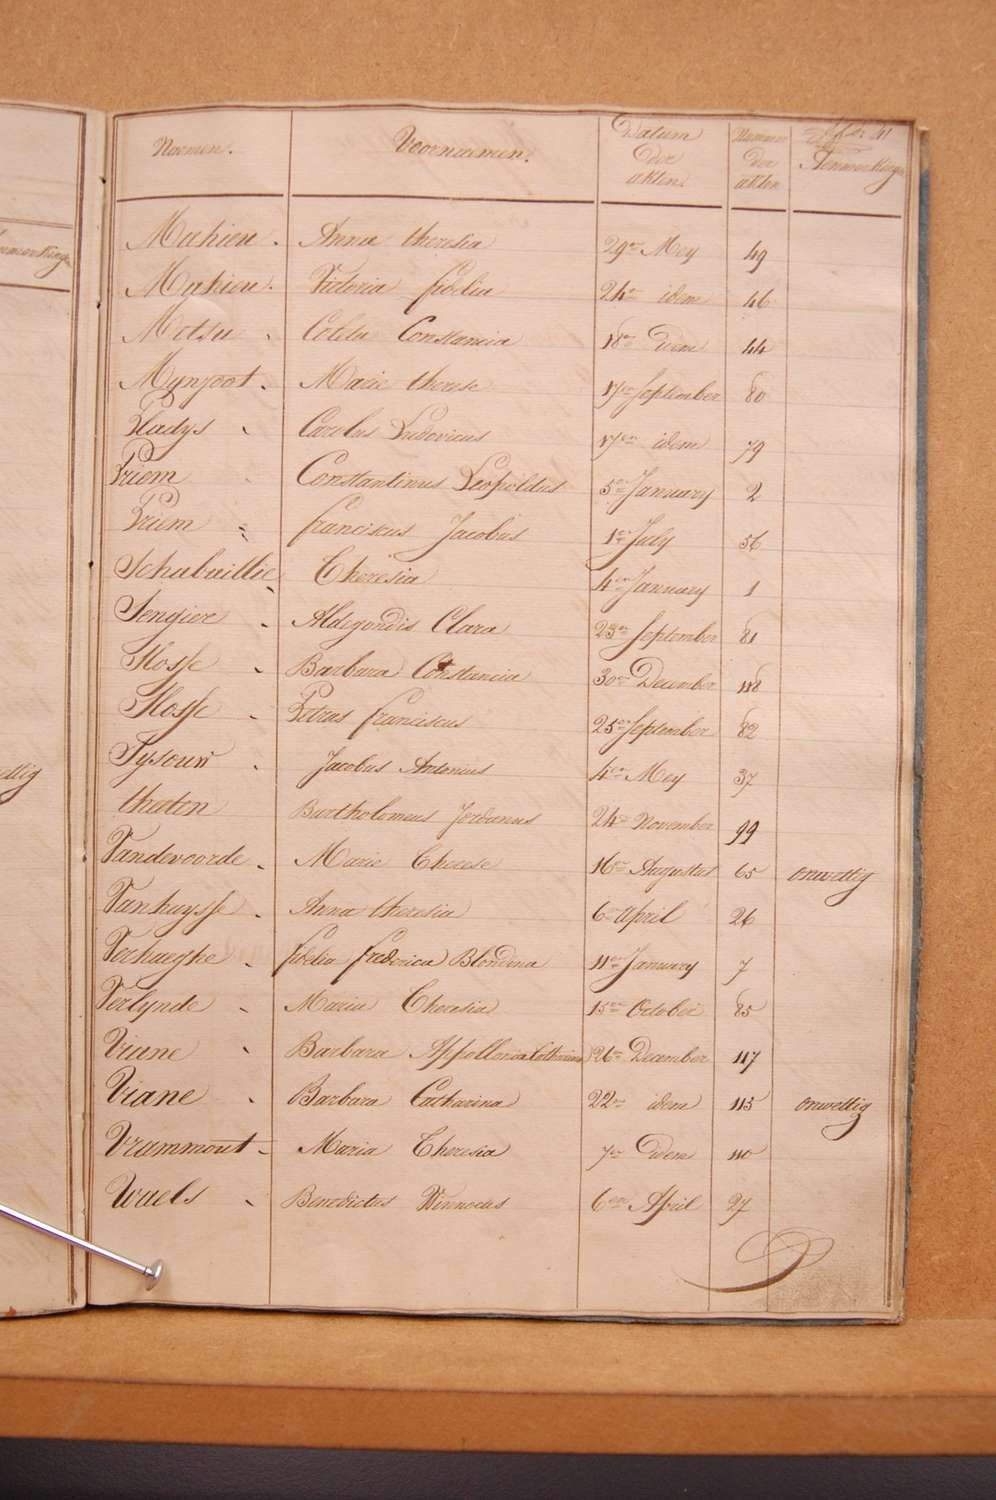 Naamen. Voornaamen. Datum der akten. Nummer der akten Aenmerkingen
Mahieu. Anna theresia 29en Mey 49
Mahieu. Victoria fidelia 24en idem 46
Coleta Constancia 18en idem 44
Mynjoot. Marie therese 17en September 80
Pladys Carolus Ludovicus 17en idem 79
Priem Constantinus Leopoldus 5en January 2
Priem franciscus Jacobus 1en July 56
Schabaillie Theresia 4en January 1
Sengier Aldegondis Clara 23en September 81
Slosse Barbara Constancia 30en December 118
Slosse Petrus franciscus 25en September 82
Sysouw Jacobus Antonius 4en Mey 37
theeten Bartholomeus Jordanus 24en November 99
Vandevoorde Marie Therese 16en Augustus 65 onwettig
Vanhuysse Anna theresia 6en April 26
Verhaeghe fidelia frederica Blondina 11en January 7
Verlynde Maria Theresia 15en October 85
Viane Barbara Appollonia Catharina 26en December 117
Viane Barbara Catharina 22en idem 115 onwettig
Vrammout Maria Theresia 7en idem 110
Waels Benedictus Winnocus 6en April 27